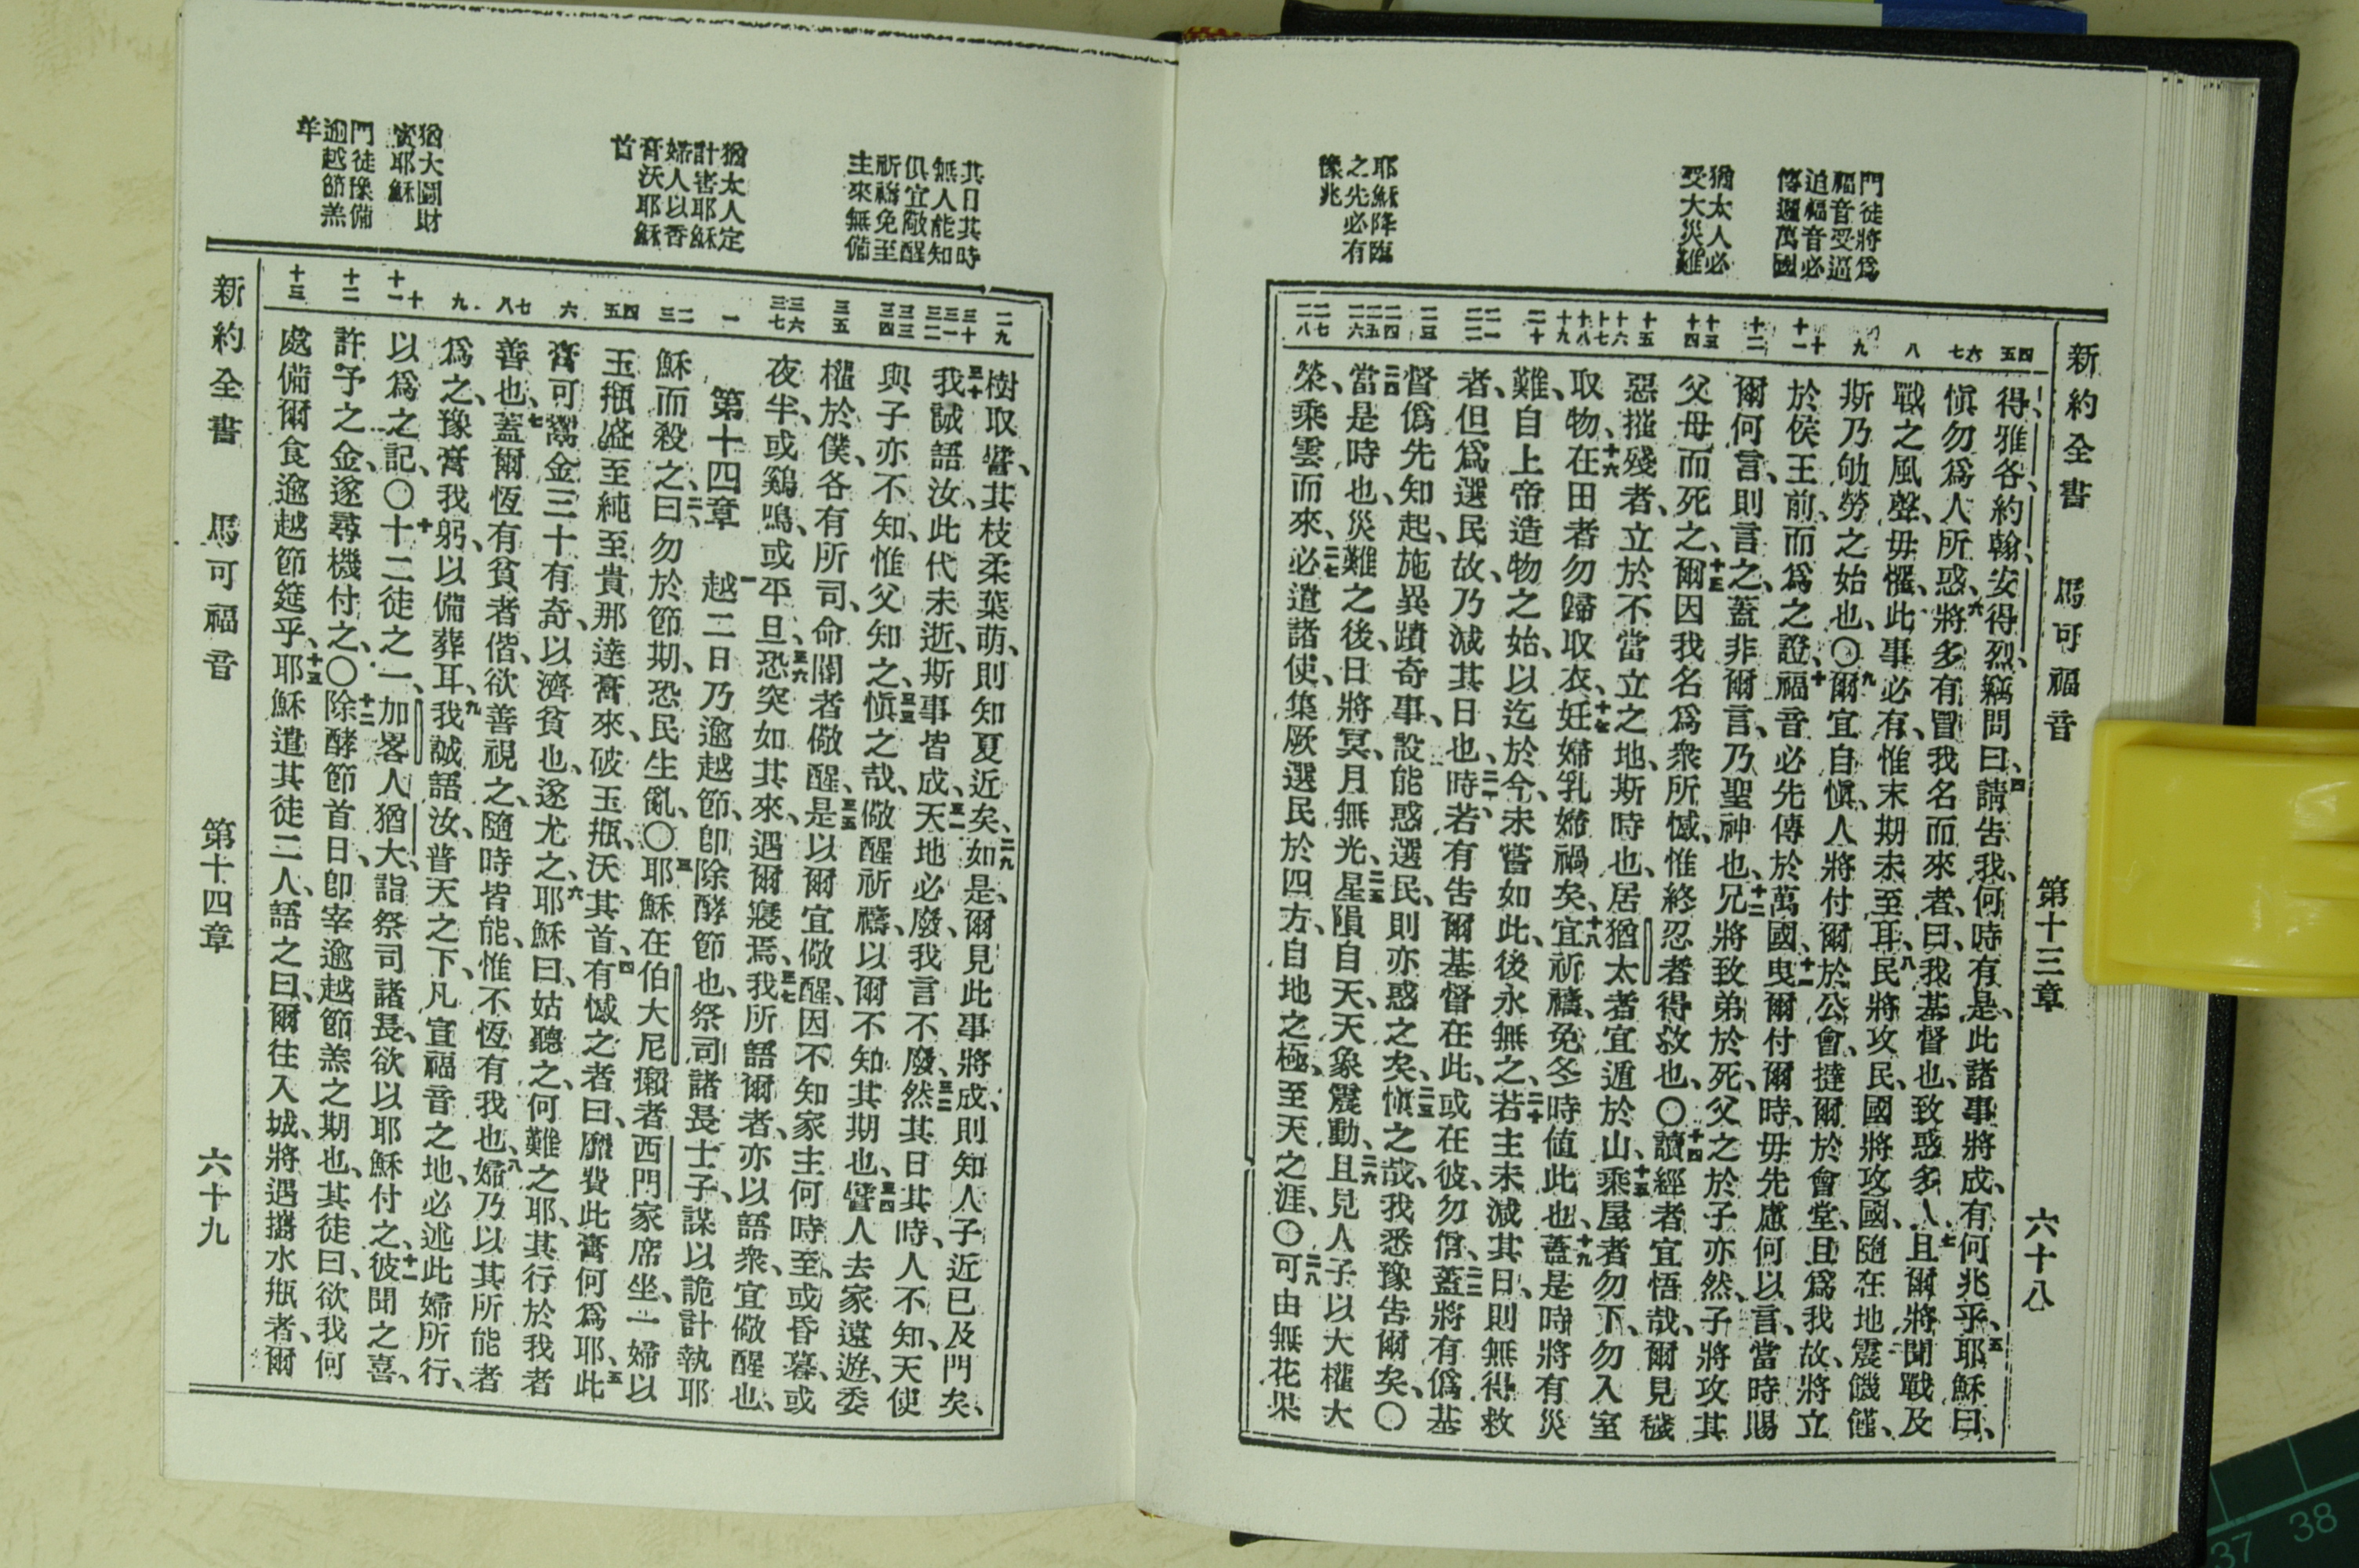 新約全書 馬可福音 第十三章 六十八
門徒將爲
福音受逼
迫福音必
傳遍萬國
猶太人必
受大災難
耶穌降臨
之先必有
豫兆
四五
六七
八
九
十十一
十二
十三十四
十五
十六十七十八十九
二十
二一二二
二三
二四二五二六
二七二八
得、雅各、約翰、安得烈、竊問曰、四請告我、何時有是、此諸事將成、有何兆乎、五耶穌曰、
愼勿爲人所惑、六將多有冒我名而來者、曰、我基督也、致惑多人、七且爾將聞戰及
戰之風聲、毋懼、此事必有、惟末期未至耳、八民將攻民、國將攻國、隨在地震饑饉、
斯乃劬勞之始也、〇九爾宜自愼、人將付爾於公會、撻爾於會堂、且爲我故、將立
於侯王前、而爲之證、十福音必先傳於萬國、十一曳爾付爾時、毋先慮何以言、當時賜
爾何言、則言之、蓋非爾言、乃聖神也、十二兄將致弟於死、父之於子亦然、子將攻其
父母、而死之、十三爾因我名爲衆所憾、惟終忍者得救也、〇十四讀經者宜悟哉、爾見穢
惡摧殘者、立於不當立之地、斯時也、居猶太者宜遁於山、十五乘屋者勿下、勿入室
取物、十六在田者勿歸取衣、十七妊婦乳婦禍矣、十八宜祈禱、免冬時値此也、十九蓋是時將有災
難、自上帝造物之始、以迄於今、未嘗如此、後永無之、二十若主未減其日、則無得救
者、但爲選民故、乃減其日也、二一時若有告爾基督在此、或在彼、勿信、二二蓋將有僞基
督僞先知起、施異蹟奇事、設能惑選民、則亦惑之矣、二三愼之哉、我悉豫告爾矣、〇
二四當是時也、災難之後、日將冥、月無光、二五星隕自天、天象震動、二六且見人子以大權大
榮、乘雲而來、二七必遣諸使、集厥選民於四方、自地之極、至天之涯、〇二八可由無花果
其日其時
無人能知
俱宜儆醒
祈禱免至
主來無備
猶太人定
計害耶穌
婦人以香
膏沃耶穌
首
猶大圖財
賣耶穌
門徒豫備
逾越節羔
羊
二九
三十三一三二
三三三四
三五
三六三七
一
二三
四五
六
七八
九
十十一
十二
十三
樹取譬、其枝柔葉萌、則知夏近矣、二九如是、爾見此事將成、則知人子近已及門矣、
三十我誠語汝、此代未逝、斯事皆成、三一天地必廢、我言不廢、三二然其日其時、人不知、天使
與子亦不知、惟父知之、三三愼之哉、儆醒祈禱、以爾不知其期也、三四譬人去家遠遊、委
權於僕、各有所司、命閽者儆醒、三五是以爾宜儆醒、因不知家主何時至、或昏暮、或
夜半、或鷄鳴、或平旦、三六恐突如其來、遇爾寢焉、三七我所語爾者、亦以語衆、宜儆醒也、
第十四章 一越二日乃逾越節、卽除酵節也、祭司諸長士子、謀以詭計執耶
穌而殺之、二曰、勿於節期、恐民生亂、〇三耶穌在伯大尼癩者西門家席坐、一婦以
玉瓶盛至純至貴那達膏來、破玉瓶、沃其首、四有憾之者曰、糜費此膏何爲耶、五此
膏可鬻金三十有奇、以濟貧也、遂尤之、六耶穌曰、姑聽之、何難之耶、其行於我者
善也、七蓋爾恆有貧者偕、欲善視之、隨時皆能、惟不恆有我也、八婦乃以其所能者
爲之、豫膏我躬、以備葬耳、九我誠語汝、普天之下、凡宣福音之地、必述此婦所行、
以爲之記、〇十十二徒之一、加畧人猶大、詣祭司諸長、欲以耶穌付之、十一彼聞之喜、
許予之金、遂尋機付之、〇十二除酵節首日、卽宰逾越節羔之期也、其徒曰、欲我何
處備爾食逾越節筵乎、十三耶穌遣其徒二人、語之曰、爾往入城、將遇攜水瓶者、爾
新約全書 馬可福音 第十四章 六十九
37 38